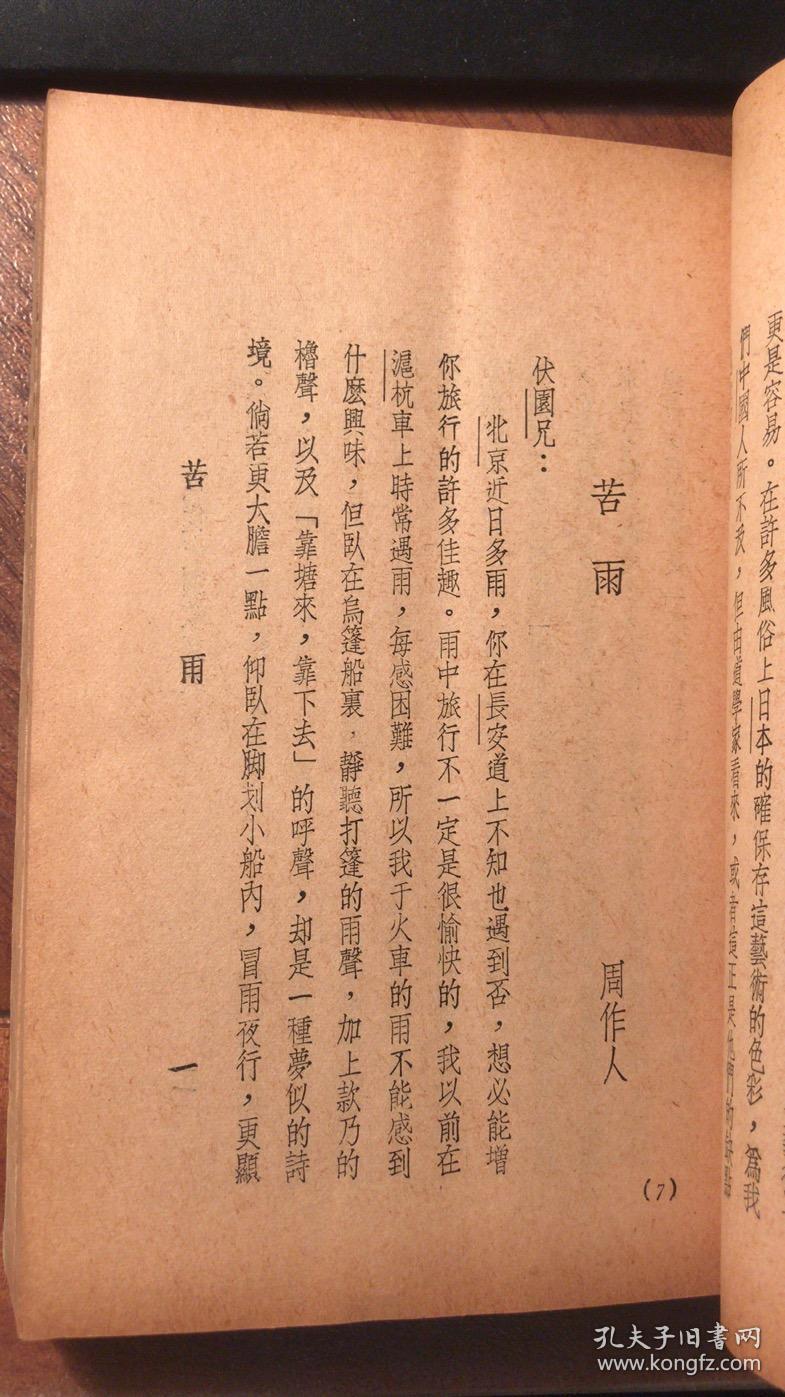 更是容易。在許多風俗上日本的確保存這藝術的色彩，為我
們中國人所不及，但由道學家看來，或者這正是他們的缺點
(7)
苦雨
周作人
伏園兄：
北京近日多雨，你在長安道上不知也遇到否，想必能增
你旅行的許多佳趣。雨中旅行不一定是很愉快的，我以前在
滬杭車上時常遇雨，每感困難，所以我于火車的雨不能感到
什麽興味，但臥在烏篷船裏，靜聽打篷的雨聲，加上款乃的
櫓聲，以及「靠塘來，靠下去」的呼聲，却是一種夢似的詩
境。倘若更大膽一點，仰臥在脚划小船內，冒雨夜行，更顯
苦雨
一
孔夫子旧書网
www.kongfz.com